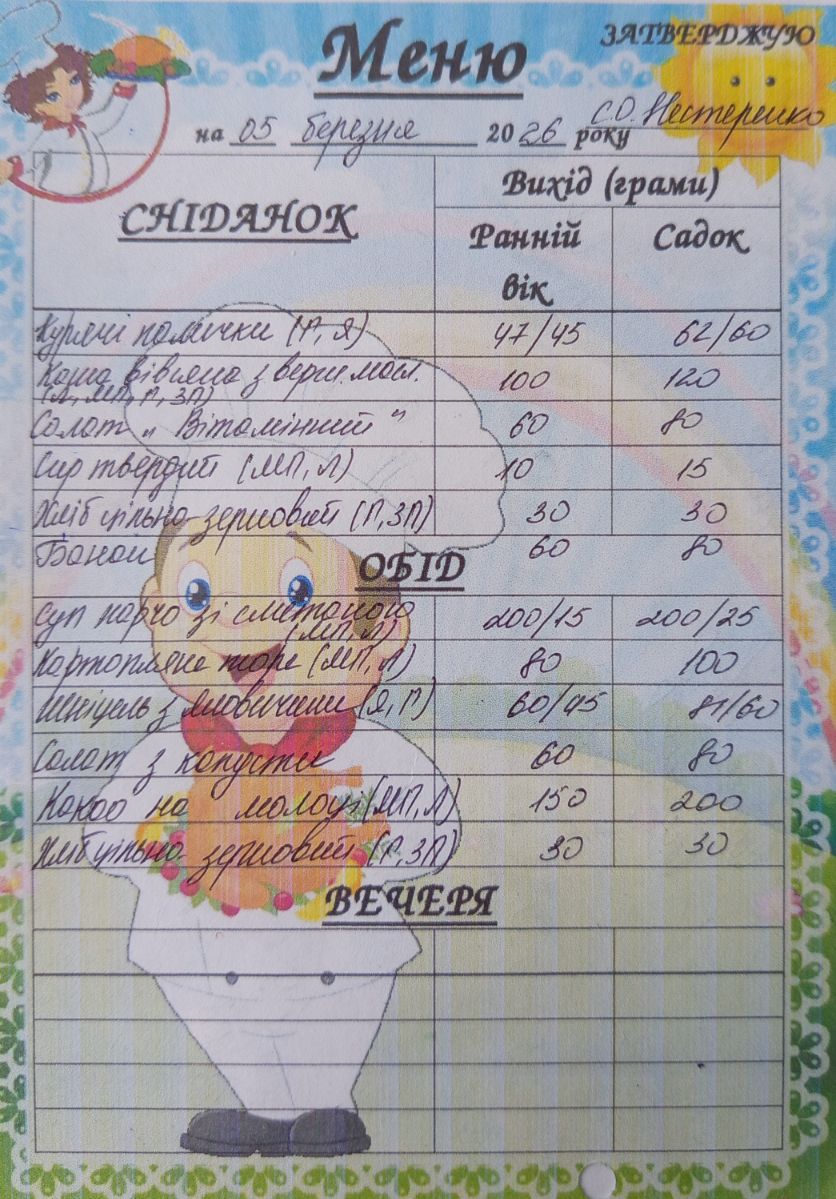 Меню
ЗАТВЕРДЖУЮ
С.О. Нестеренко
на 05 березня 2026 року
СНІДАНОК
Вихід (грами)
Ранній вік
Садок
Курячі палички (Г, Я) 47/45 62/60
Каша вівсяна з верш. масл. 100 120
(Л, МП, Г, ЗП)
Салат „Вітамінний" 60 80
Сир твердий (МП, Л) 10 15
Хліб цільно-зерновий (Г, ЗП) 30 30
Банан 60 80
ОБІД
Суп харчо зі сметаною 200/15 200/25
(МП, Л)
Картопляне пюре (МП, Л) 80 100
Шніцель з яловичини (Я, Г) 60/45 81/60
Салат з капусти 60 80
Какао на молоці (МП, Л) 150 200
Хліб цільно-зерновий (Г, ЗП) 30 30
ВЕЧЕРЯ